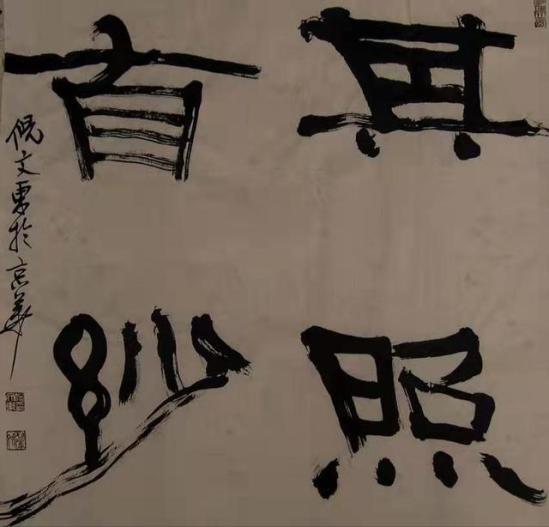 其照
自妙
倪文東於京華